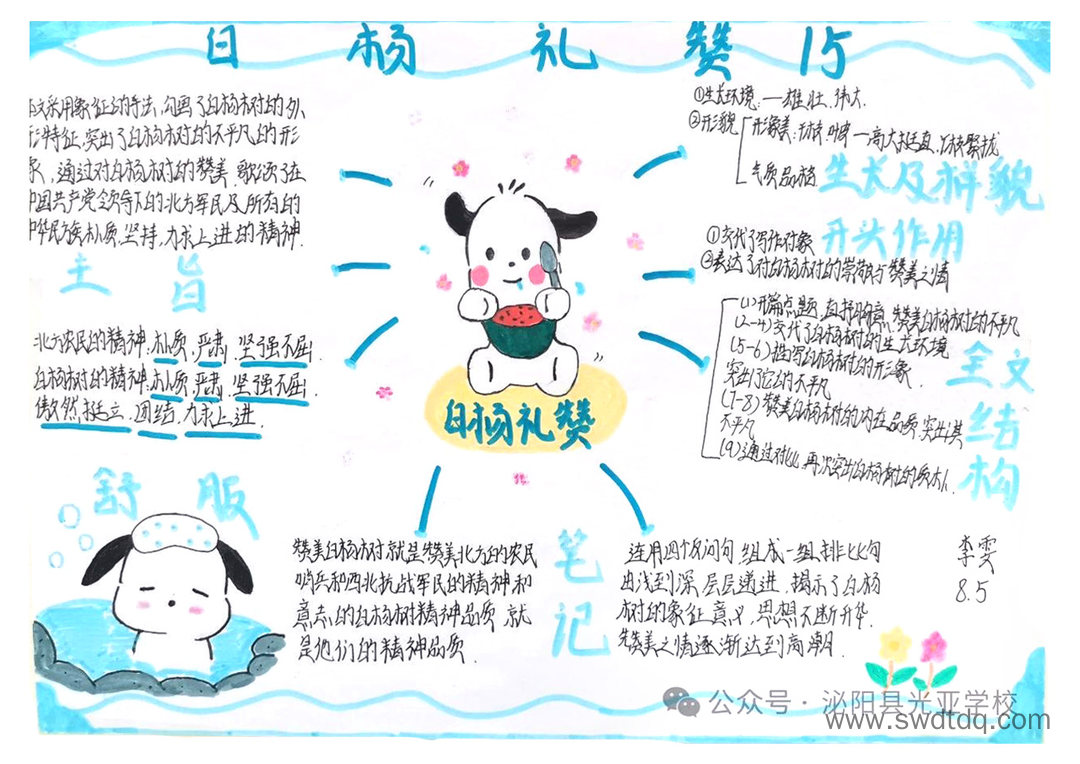 白杨礼赞 15
本文采用象征的手法,勾画了白杨树的外
形特征,突出了白杨树的不平凡的形
象,通过对白杨树的赞美,歌颂了在
中国共产党领导下的北方军民及所有的
中华民族朴质、坚持、力求上进的精神.
主旨
北方农民的精神:朴质、严肃、坚强不屈.
白杨树的精神:朴质、严肃、坚强不屈.
傲然挺立、团结、力求上进.
舒服
①生长环境:一雄壮、伟大.
②形貌
形象美:干枝叶皮一高大挺直、枝繁扰
气质品格
生长及样貌
①交代了写作对象
②表达了对白杨树的崇敬与赞美之情
开头作用
(1)开篇点题,直抒胸意,赞美白杨树的不平凡
(2-4)交代了白杨树的生长环境
(5-6)描写白杨树的形象.
突出了它的不平凡
(7-8)赞美白杨树的内在品质,突出其
不平凡
(9)通过对比,再次突出白杨树的质朴.
全文
结
构
白杨礼赞
赞美白杨树就是赞美北方的农民
哨兵和西北抗战军民的精神和
意志的白杨树精神品质,就
是他们的精神品质.
笔
记
连用四个反问句,组成一组排比句
由浅到深,层层递进,揭示了白杨
树的象征意义,思想不断升华.
赞美之情逐渐达到高潮.
李雯
8.5
公众号·泌阳县光亚学校
www.swdtdq.com